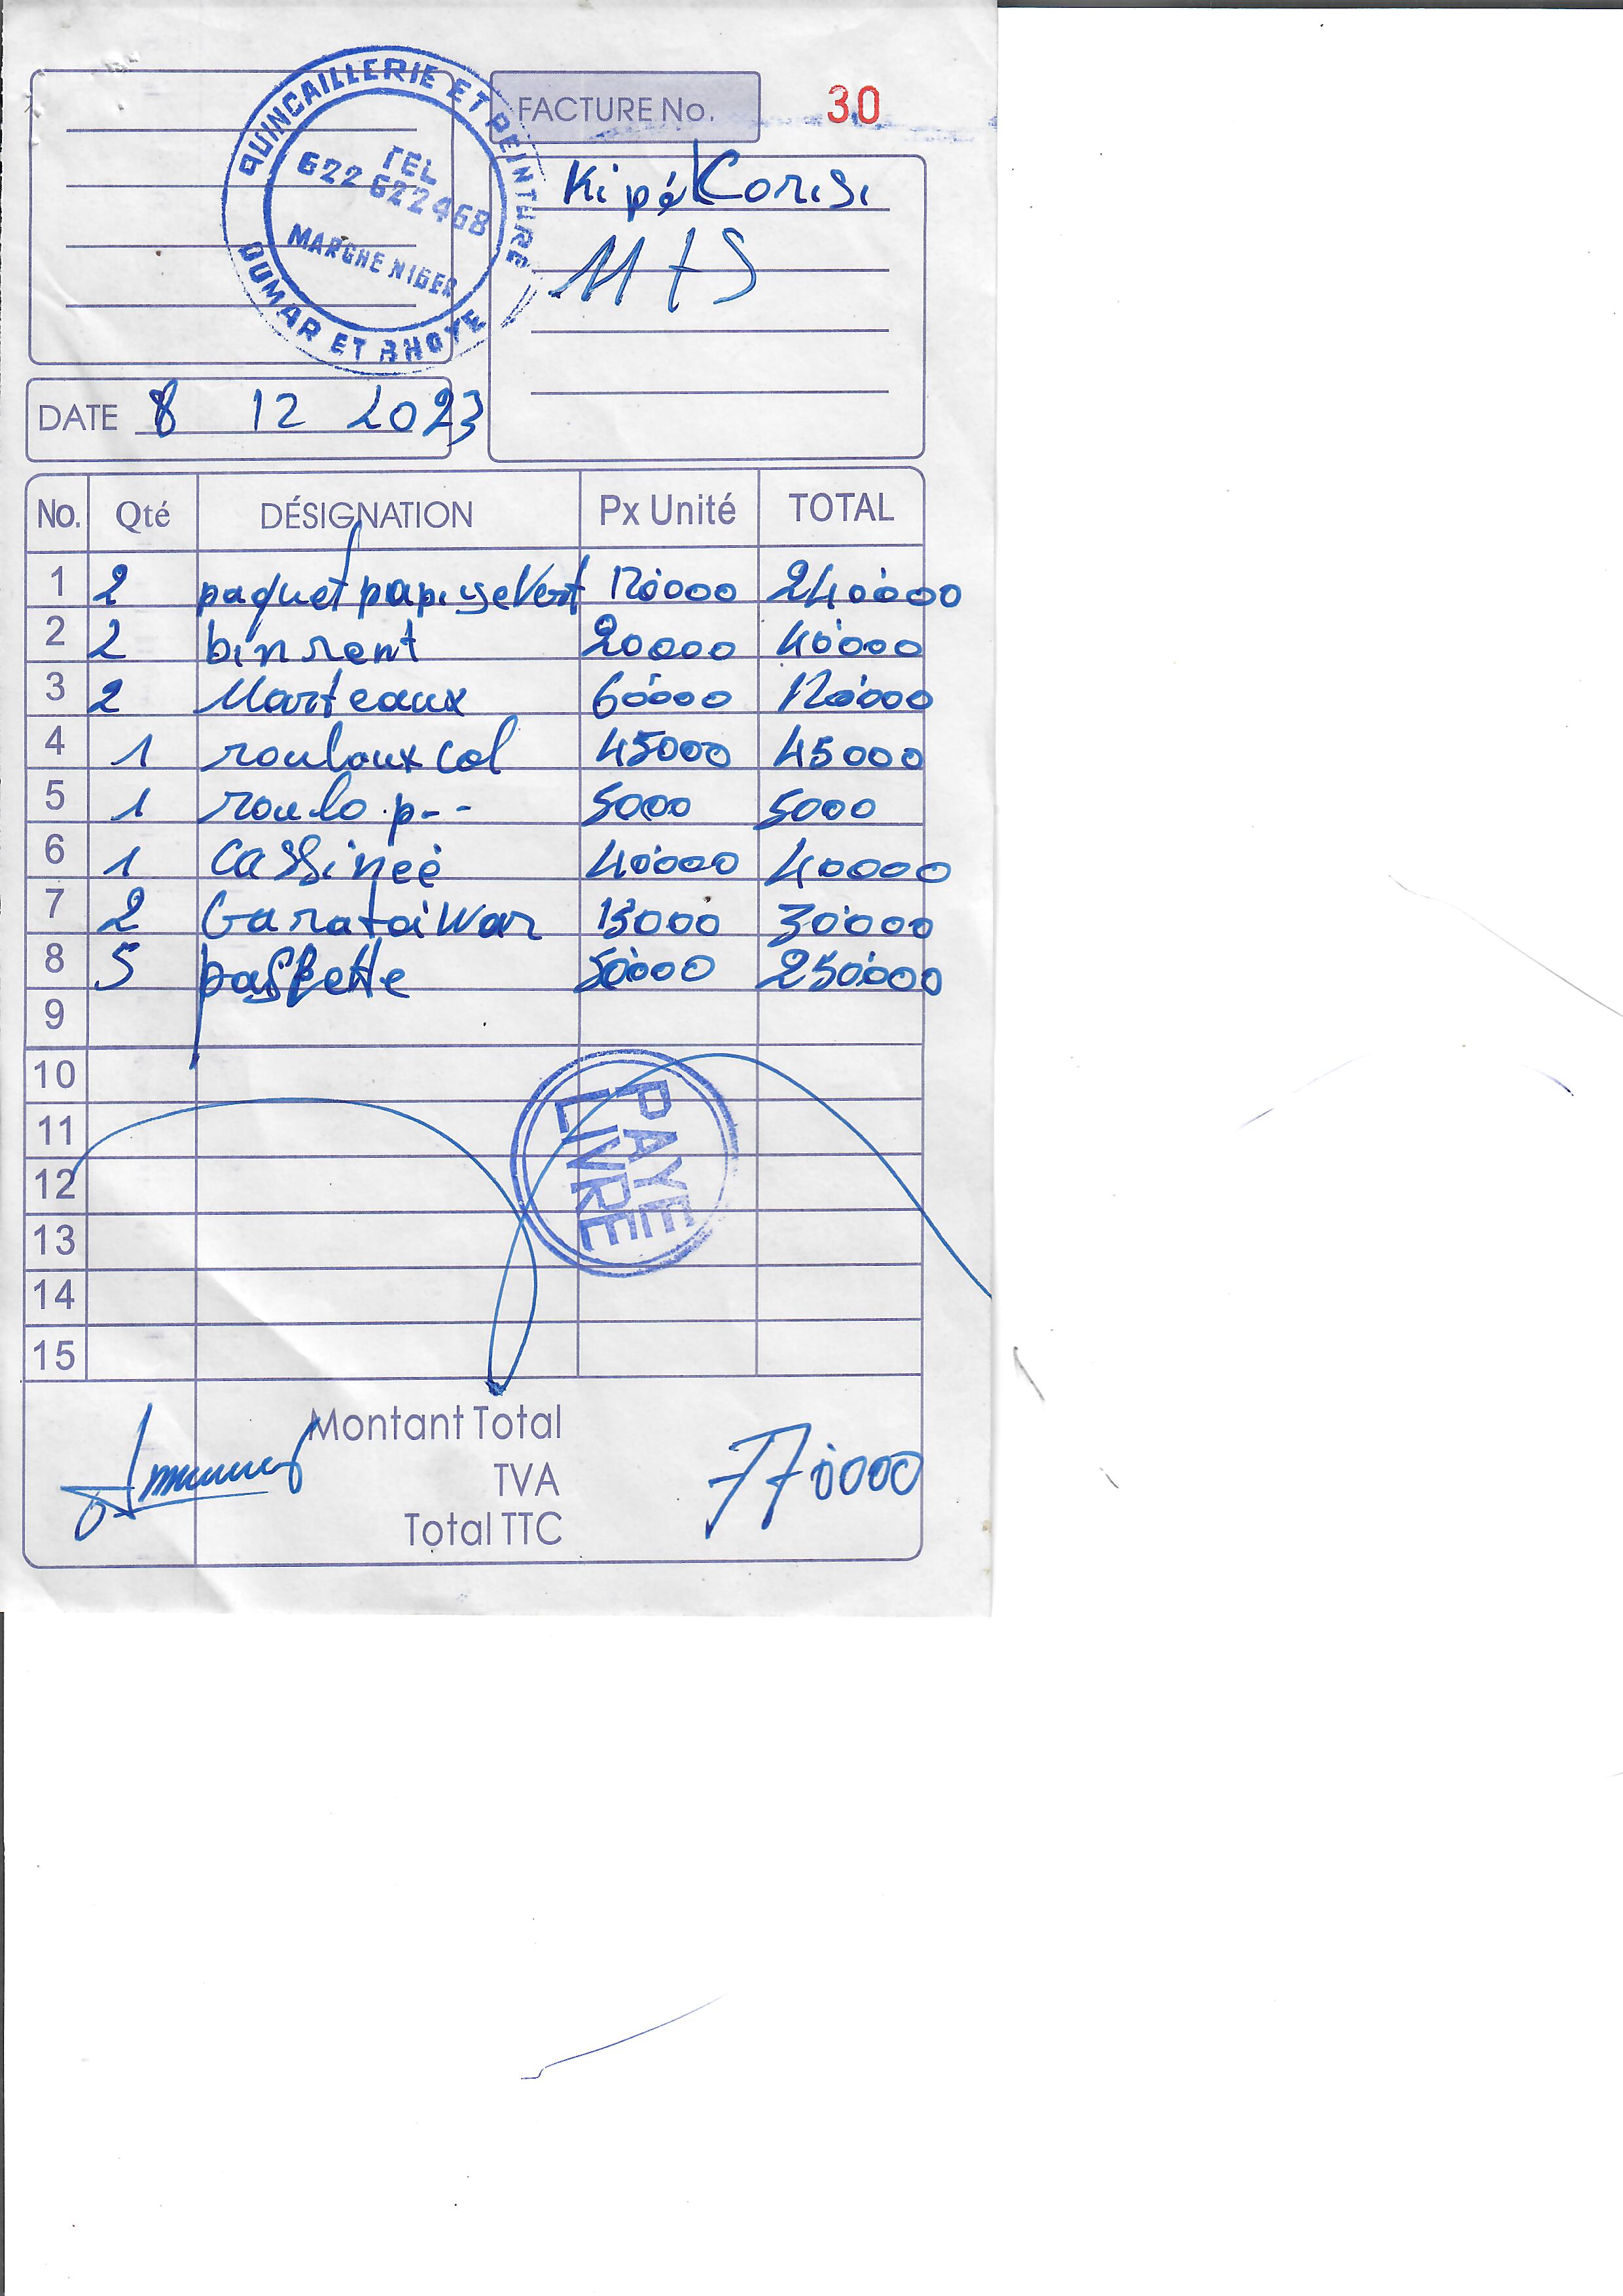 QUINCAILLERIE ET PEINTURE
TEL
622 622468
MARCHE NIGER
OUMAR ET BHOYE
FACTURE No. 30
Kipé Corisi
M+S
DATE 8 12 2023
No. Qté DÉSIGNATION Px Unité TOTAL
1 2 paquet 120000 240000
2 2 20000 40000
3 2 Marteaux 60000 120000
4 1 roulaux col 45000 45000
5 1 roulo p-- 5000 5000
6 1 40000 40000
7 2 15000 30000
8 5 50000 250000
9
10
11
12
13
14
15
PAYE
LIVRE
Montant Total
TVA
Total TTC
770000